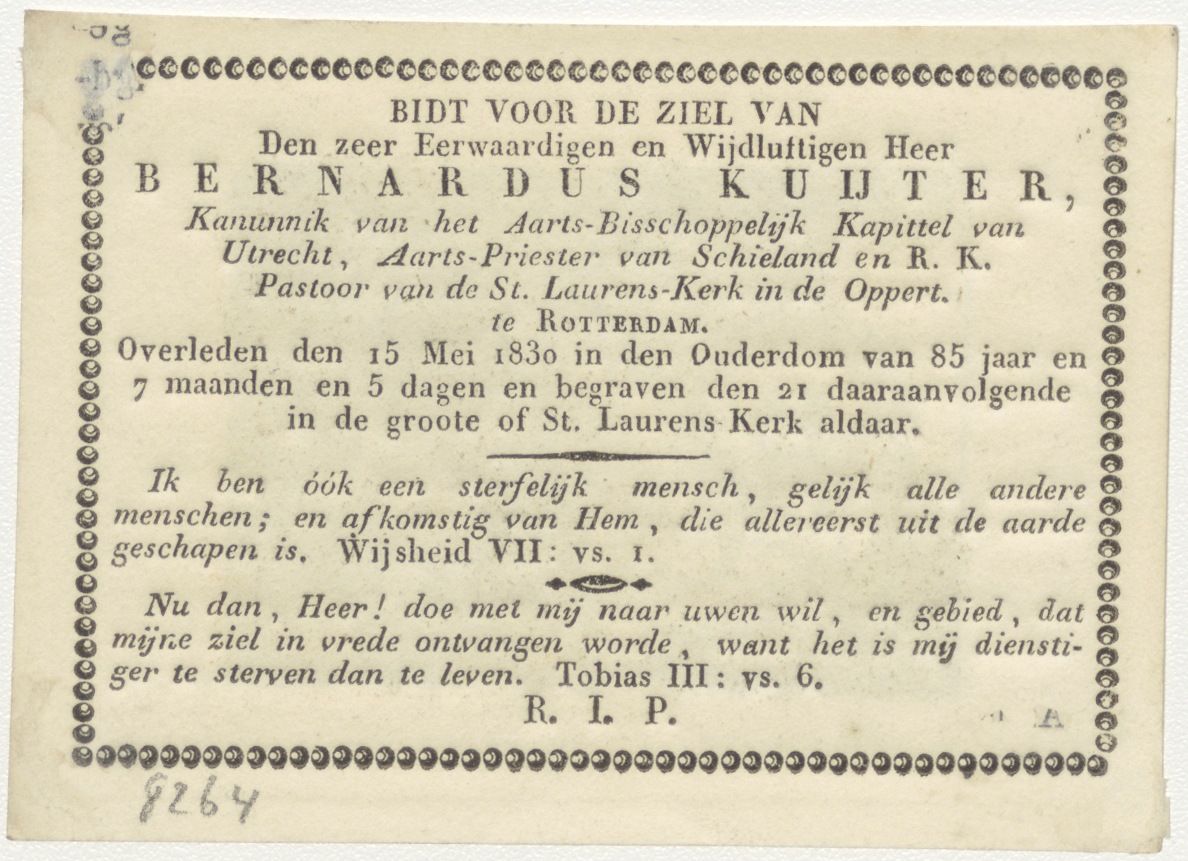 BIDT VOOR DE ZIEL VAN
Den zeer Eerwaardigen en Wijdluftigen Heer
BERNARDUS KUIJTER,
Kanunnik van het Aarts-Bisschoppelijk Kapittel van
Utrecht, Aarts-Priester van Schieland en R. K.
Pastoor van de St. Laurens-Kerk in de Oppert.
te ROTTERDAM.
Overleden den 15 Mei 1830 in den Ouderdom van 85 jaar en
7 maanden en 5 dagen en begraven den 21 daaraanvolgende
in de groote of St. Laurens-Kerk aldaar.
Ik ben óók een sterfelijk mensch, gelijk alle andere
menschen; en afkomstig van Hem, die allereerst uit de aarde
geschapen is. Wijsheid VII: vs. 1.
Nu dan, Heer! doe met mij naar uwen wil, en gebied, dat
mijne ziel in vrede ontvangen worde, want het is mij diensti-
ger te sterven dan te leven. Tobias III: vs. 6.
R. I. P.
8264